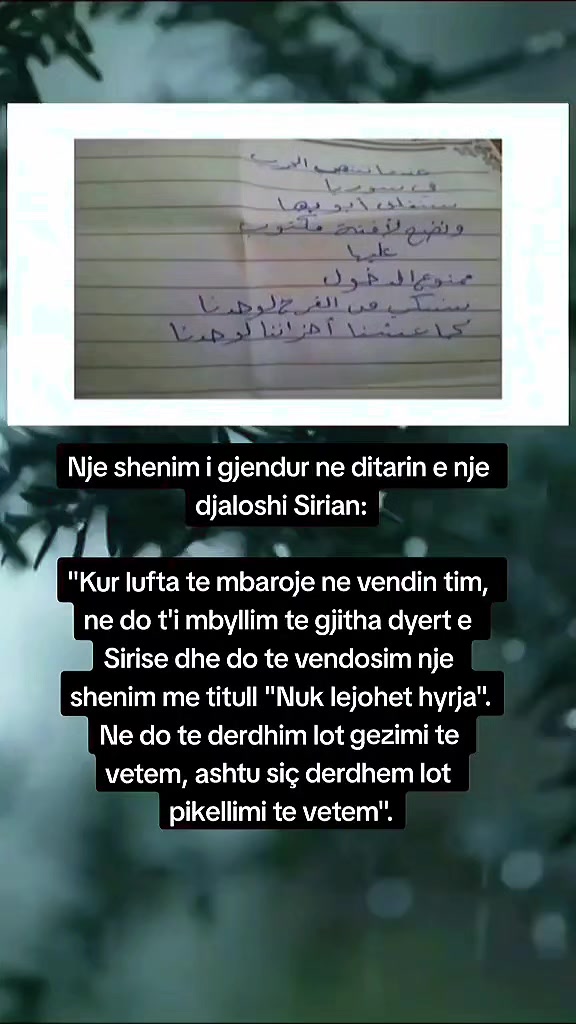 عندما تنتهي الحرب
في سوريا
سنغلق أبوابها
ونضع لافتة مكتوب
عليها
ممنوع الدخول
سنبكي من الفرح لوحدنا
كما عشنا أحزاننا لوحدنا
Nje shenim i gjendur ne ditarin e nje
djaloshi Sirian:
"Kur lufta te mbaroje ne vendin tim,
ne do t'i mbyllim te gjitha dyert e
Sirise dhe do te vendosim nje
shenim me titull "Nuk lejohet hyrja".
Ne do te derdhim lot gezimi te
vetem, ashtu siç derdhem lot
pikellimi te vetem".